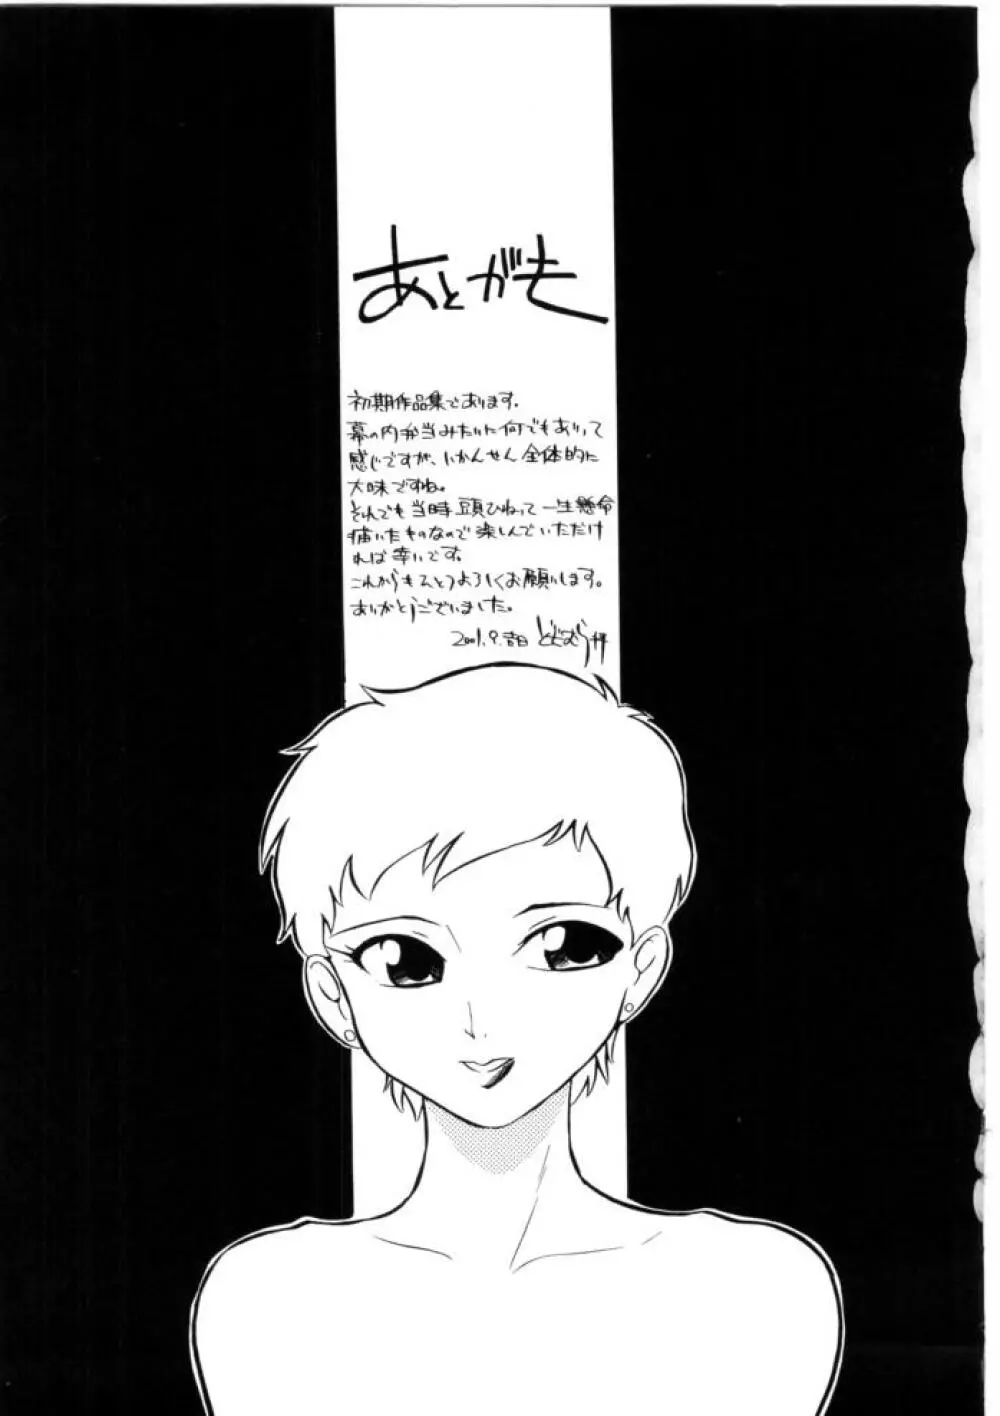 あとがき
初期作品集であります。
幕の内弁当みたいに何でもありって
感じですが、いかんせん全体的に
大味ですね。
それでも当時頭ひねって一生懸命
描いたものなので楽しんでいただけ
れば幸いです。
これからもひとつよろしくお願いします。
ありがとうございました。
2001.9.吉日 どどむら